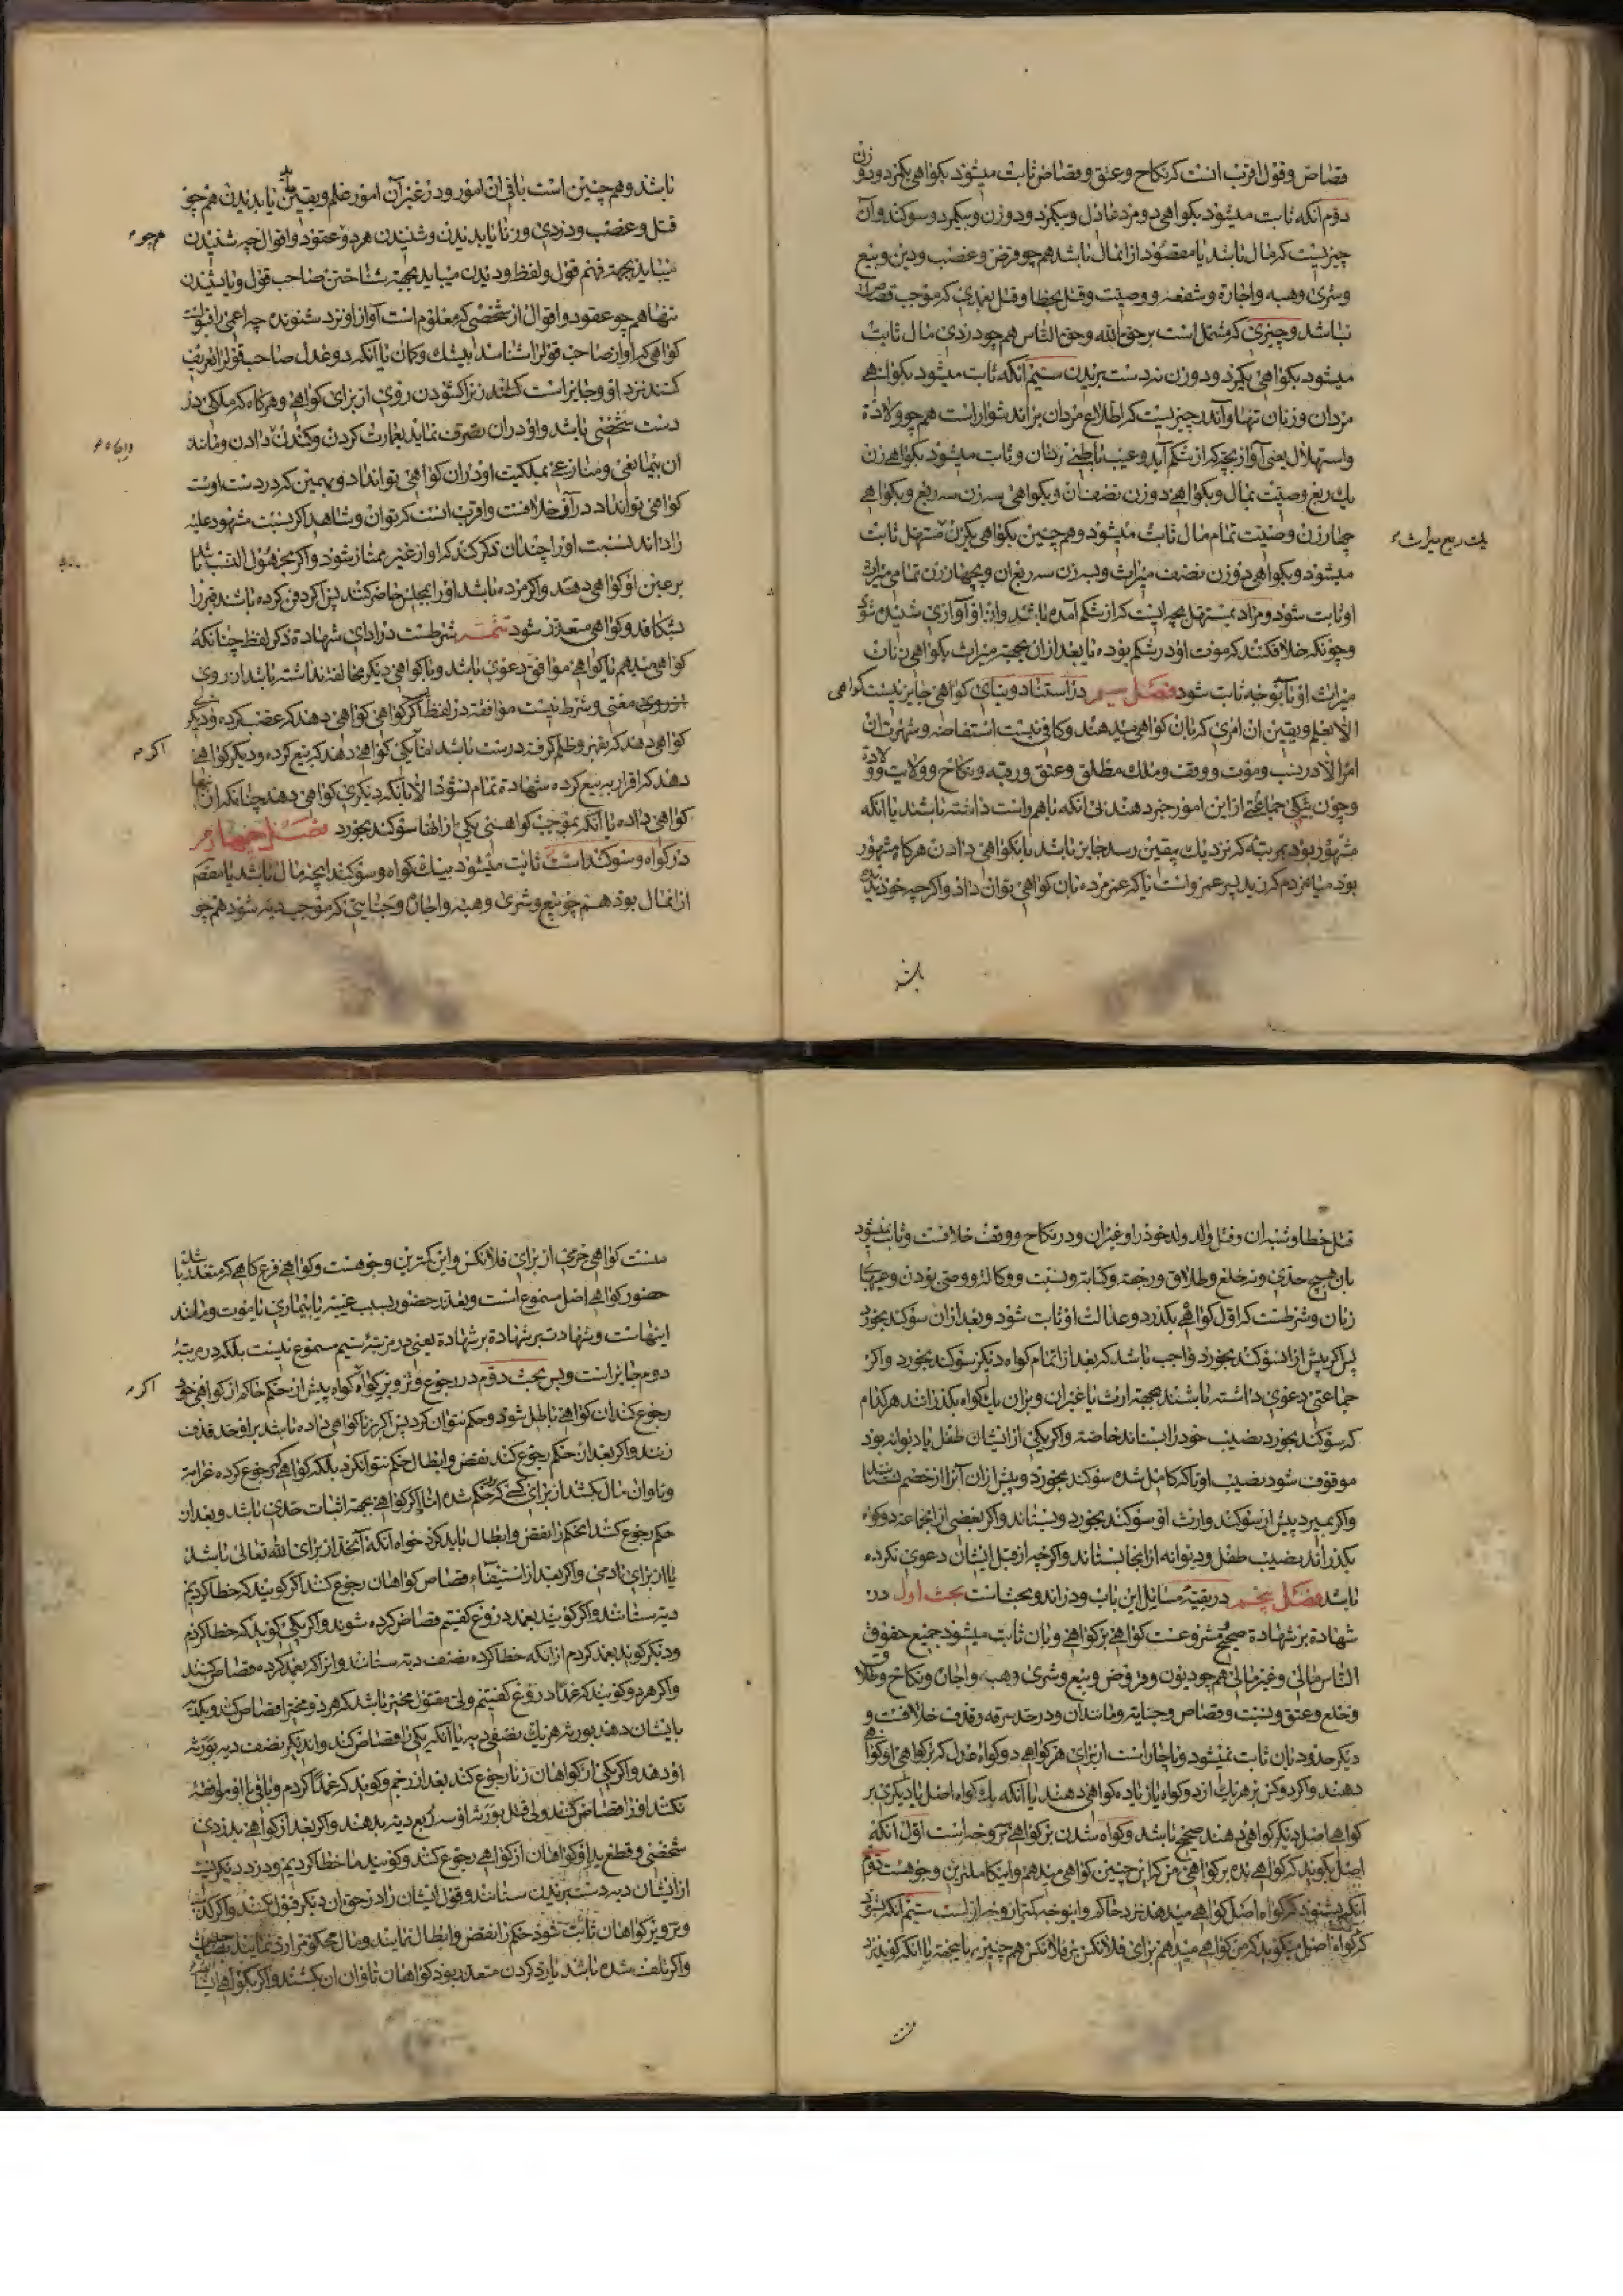 قصاص و قول اقرب انست کرنکاح و عتق و قصاص ثابت میشود بکواهی یکمرد و دو زن
دوم آنکه ثابت میشود بکواهی دو مرد عادل و بیکمرد و دو زن و بیکمرد و سوکند و آن
چیزیست که مال باشد یا مقصود از ان مال باشد هم چو قرض و غصب و دین و بیع
و شری و هبه و اجارة و شفعه و وصیت و قتل بخطا و قتل بعمدی که موجب قصاص
نباشد و چیزی که مشتمل است بر حق الله و حق الناس هم چو دزدی مال ثابت
میشود بکواهی یکمرد و دو زن نه دست بریدن سیم آنکه ثابت میشود بکواهی
مردان و زنان تنها و آن چیزیست که اطلاع مردان بران دشوار است هم چو ولادة
و استهلال یعنی آواز بچه که از شکم آید و عیب باطنی زنان و ثابت میشود بکواهی زن
یک ربع وصیت بمال و بکواهی دو زن نصف ان و بکواهی سه زن سه ربع و بکواهی
چهار زن وصیت تمام مال ثابت میشود و هم چنین بکواهی یکزن مستهل ثابت
یک ربع میراث
میشود و بکواهی دو زن نصف میراث و به زن سه ربع ان و چهار زن تمامی میراث
او ثابت شود و مراد بمستهل بچه ایست که از شکم آمده باشد و از او آوازی شنیده شود
و چونکه خلاف کنند که موت او در شکم بوده یا بعد از ان بجهة میراث بکواهی زنان
میراث او بآن وجه ثابت شود فصل سیم در استناد و بنای کواهی جایز نیست کواهی
الا بعلم و یقین ان امری که بان کواهی میدهند و کافی نیست استفاضه و شهرت ان
امر الا در نسب و موت و وقف و ملک مطلق و عتق و رقیه و نکاح و ولایت و ولادة
و چون یکی جماعتی از این امور خبر دهند بی آنکه باهم واست داشته باشند یا آنکه
مشهور بود بمرتبه که نزدیک بیقین رسد جایز باشد بان کواهی دادن هرکاه مشهور
بود میان مردم که زید پسر عمرو است یا که عمر مرده بان کواهی توان داد و اکرچه خود ندیده
باشد
باشد و هم چنین است باقی ان امور و در غیر آن امور علم و یقین باید بدیدن هم چو
قتل و غصب و دزدی و زنا یا بدیدن و شنیدن هر دو عقود و اقوال چه شنیدن
هم چو
میباید بجهة فهم قول و لفظ و دیدن میباید بجهة شناختن صاحب قول و یا شنیدن
تنها هم چو عقود و اقوال از شخصی که معلوم است آواز او نزد شنونده چه اعمی را قبولست
کواهی که آواز صاحب قول را شناسد بیشک و کمان یا آنکه دو عدل صاحب قول را تعریف
کنند نزد او و جایز است زن را کشودن روی از برای کواهی و هرکاه که ملکی در
دست شخصی باشد و او در ان تصرف نماید بعمارت کردن و کندن و دادن و مانند
ان بیمانعی و منازعی بملکیت او در ان کواهی تواند داد و بهمین که در دست اوست
کواهی تواند داد در آن خلافست و اقرب انست که توان و شاهد اکر نسبت مشهود علیه
را داند نسبت او را چندان ذکر کند که او از غیر ممتاز شود و اکر مجهول النسب باشد تا
بر عین او کواهی دهند و اکر مرده باشد او را بمجلس حاضر کنند پس اکر دفن کرده باشند قبر را
نشکافند و کواهی متعذر شود تتمه شرطست در ادای شهادة ذکر لفظ چنانکه
کواهی میدهم یا کواهی موافق دعوی باشد و با کواهی دیکر مخالفة نداشته باشد از روی
از روی معنی و شرط نیست موافقة در لفظ اکر کواهی کواهی دهد که غصب کرده و دیکر
کواهی دهد که بقهر و ظلم کرفته درست باشد اما یکی کواهی دهد که بیع کرده و دیکر کواهی
اکر
دهد که اقرار به بیع کرده شهادة تمام نشود الا بآنکه دیکری کواهی دهد چنانکه آنها
کواهی داده یا آنکه بموجب کواهی یکی از انها سوکند بخورد فصل چهارم
در کواه و سوکند است ثابت میشود بیک کواه و سوکند انچه مال باشد یا مقصد
از ان مال بود هم چو بیع و شری و هبه و اجارة و جنایتی که موجب دیه شود هم چو
قتل خطا و شبه ان و قتل والد ولد خود را و غیر ان و در نکاح و وقف خلافست و ثابت نمیشود
بان هیچ حدی و نه خلع و طلاق و رجعة و کتابة و نسبت و وکالة و وصی بودن و عیبهای
زنان و شرطست که اول کواهی بکذرد و عدالت او ثابت شود و بعد از ان سوکند بخورد
پس اکر پیش از ان سوکند بخورد واجب باشد که بعد از اتمام کواه دیکر سوکند بخورد و اکر
جماعتی دعوی داشته باشند بجهة ارث یا غیر ان و بران یک کواه بکذرانند هر کدام
که سوکند بخورد نصیب خود را بستاند خاصة و اکر یکی از ایشان طفل یا دیوانه بود
موقوف شود نصیب او تا که کامل شده سوکند بخورد و پیش از ان آنرا از خصم نستانند
و اکر بمیرد پیش از سوکند وارث او سوکند بخورد و بستاند و اکر بعضی از ان جماعة دو کواه
بکذرانند نصیب طفل و دیوانه از انجا بستاند و اکرچه از قبل ایشان دعوی نکرده
باشد فصل پنجم در بقیه مسایل این باب و در ان دو بحث است بحث اول در
شهادة بر شهادة صحیح و مشروعست کواهی بر کواهی و بان ثابت میشود جمیع حقوق
الناس مالی و غیر مالی هم چو دیون و قروض و بیع و شری و هبه و اجاره و نکاح و طلاق
و خلع و عتق و نسبت و قصاص و جنایة و مانند ان و در حد سرقه و قذف خلافست و
دیکر حدود بان ثابت نمیشود و ناچار است از برای هر کواهی دو کواه عدل که بر کواهی او کواهی
دهند و اکر دو کس بر هر یک از دو کواه یا زیاده کواهی دهند یا آنکه یک کواه اصل با دیکری بر
کواهی اصل دیکر کواهی دهند صحیح باشد و کواه شدن بر کواهی بر سه وجه است اول آنکه
اصل بکوید که کواهی بده بر کواهی من که برین چنین کواهی میدهم و این کاملترین وجوهست دوم
آنکه بشنود که کواه اصل کواهی میدهد نزد حاکم و اینوجه کمتر از وجه اول است سیم آنکه بشنود
که کواه اصل میکوید که من کواهی میدهم برای فلانکس بر فلانکس هم چنین به یا بجهة یا آنکه کوید نزد
منست
منست کواهی جزمی از برای فلانکس و این کمترین وجوهست و کواهی فرع کاهی که متعذر باشد
حضور کواهی اصل مسموع است و تعذر حضور بسبب غیبة یا بیماری یا موت و مانند
اینهاست و شهادت بر شهادة بر شهادة یعنی در مرتبه سیم مسموع نیست بلکه در مرتبه
دوم جایز است و بس بحث دوم در رجوع و تزویر کواه کواه پیش از حکم حاکم از کواهی خود
اکر
رجوع کند ان کواهی باطل شود و حکم نتوان کرد پس اکر بزنا کواهی داده باشد بر او حد قذف
زنند و اکر بعد از حکم رجوع کند نقض و ابطال حکم نتوانکرد بلکه کواهی که رجوع کرده غرامة
و تاوان مال بکشد از برای کسی که بر حکم شده اما اکر کواهی بجهة اثبات حدی باشد و بعد از
حکم رجوع کنند انحکم را نقض و ابطال باید کرد خواه آنکه آنحد از برای الله تعالی باشد
یا از برای ادمی و اکر بعد از استیفاء قصاص کواهان رجوع کنند اکر کویند که خطا کردیم
دیه ستانند و اکر کویند بعمد دروغ کفتیم قصاص کرده شوند و اکر یکی کوید که خطا کردم
و دیکر کوید بعمد کردم از آنکه خطا کرده نصف دیه ستانند و انرا که بعمد کرده قصاص کنند
و اکر هر دو کویند که عمدا دروغ کفتیم ولی مقتول مخیر باشد که هر دو مخیر را قصاص کند و یکدیه
بایشان دهد بورثه هر یک نصفی دیه یا آنکه یکی را قصاص کند و ان دیکر نصف دیه بورثه
او دهد و اکر یکی از کواهان زنا رجوع کند بعد از رجم و کوید که عمدا کردم و باقی با او موافقة
نکنند او را قصاص کنند ولی قتل بورثه او سه ربع دیه بدهند و اکر بعد از کواهی بدزدی
شخصی و قطع ید او کواهان از کواهی رجوع کنند و کویند ما خطا کردیم و دزد دیکریست
از ایشان دیه دست بریدن ستانند و قول ایشان را در حق ان دیکر قبول نکنند و اکر کذب
و تزویر کواهان ثابت شود حکم را نقض و ابطال نمایند و مال محکوم را رد نمایند
و اکر تلف شده باشد یا رد کردن متعذر بود کواهان تاوان ان بکشند و اکر بکواهی